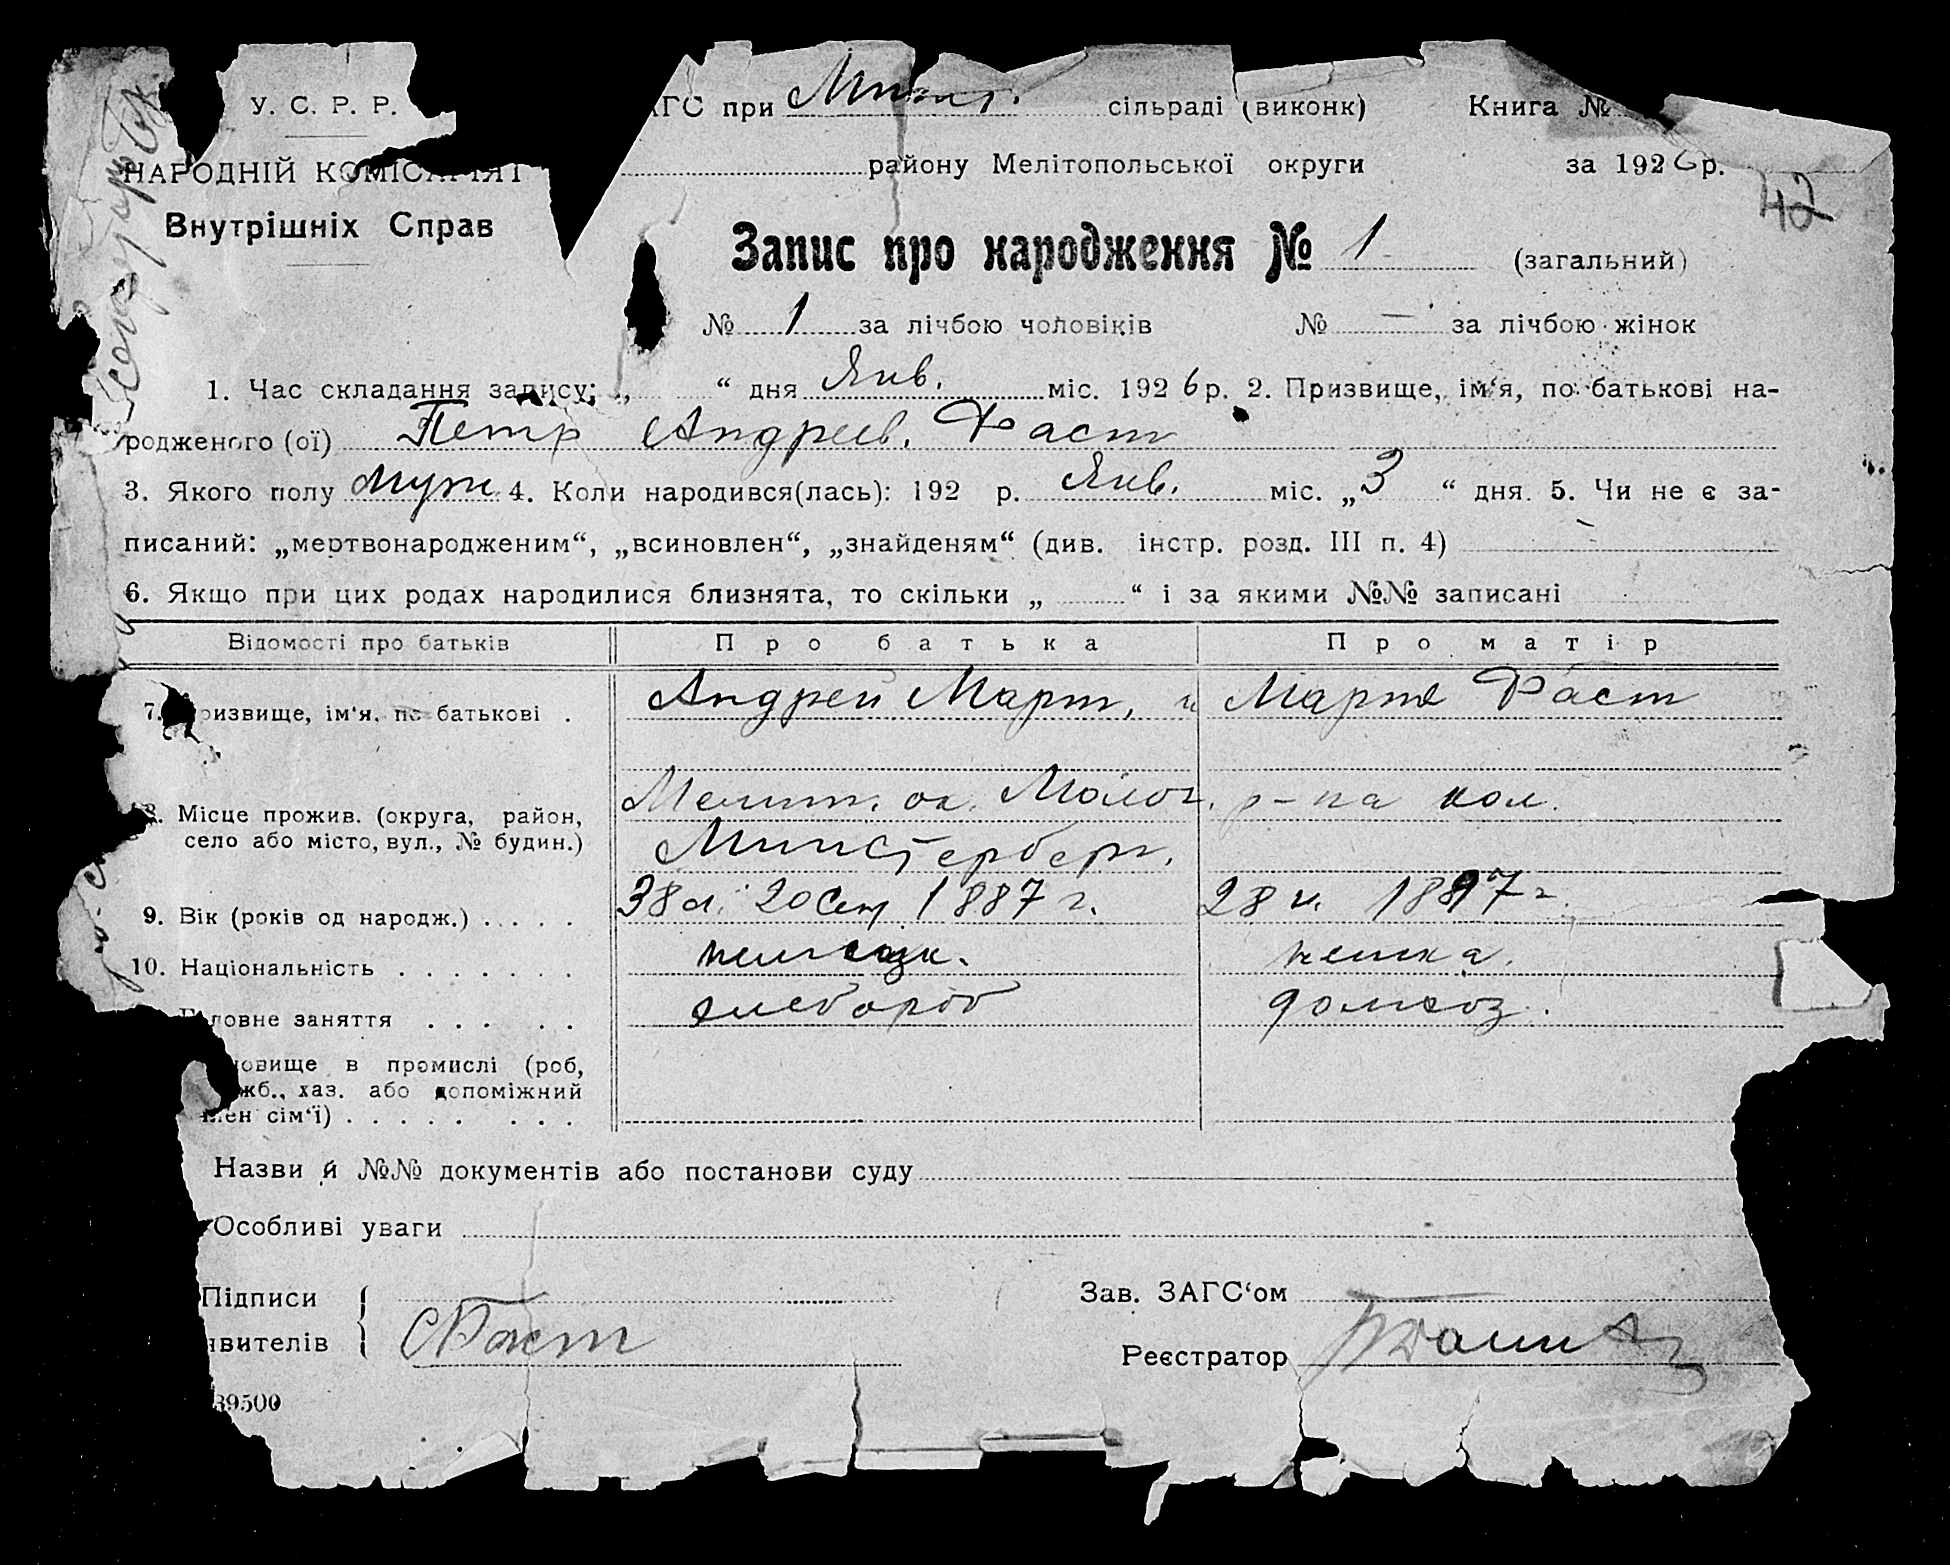 У. С. Р. Р.
АГС при Минст. сільраді (виконк) Книга №
НАРОДНІЙ КОМІСАРІЯТ
району Мелітопольської округи за 1926 р.
42
Внутрішніх Справ
Запис про народження № 1 (загальний)
№ 1 за лічбою чоловіків № — за лічбою жінок
1. Час складання запису: „ “ дня Янв. міс. 1926 р. 2. Призвище, ім‘я, по батькові на-
родженого (ої) Петр Андреев. Фаст
3. Якого полу муж 4. Коли народився(лась): 192 р. Янв. міс. „3 “ дня. 5. Чи не є за-
писаний: „мертвонародженим“, „всиновлен“, „знайденям“ (див. інстр. розд. III п. 4) —
6. Якщо при цих родах народилися близнята, то скільки „ “ і за якими №№ записані
Відомості про батьків Про батька Про матір
7. Призвище, ім‘я, по батькові . Андрей Март. и Мария Фаст
8. Місце прожив. (округа, район, село або місто, вул., № будин.) Мелит. ок. Молоч. р-на кол.
Минстерберг.
9. Вік (років од народж.) . . . . . 38 л. 20 Сент 1887 г. 28 л. 1897 г.
10. Національність . . . . . . . немецк. немка.
Головне заняття . . . . . . хлебороб домхоз.
новище в промислі (роб,
жб., хаз. або допоміжний
член сім‘ї) . . . . . . . .
Назви й №№ документів або постанови суду
Особливі уваги
Підписи Зав. ЗАГС‘ом
явителів Фаст Реєстратор
39500